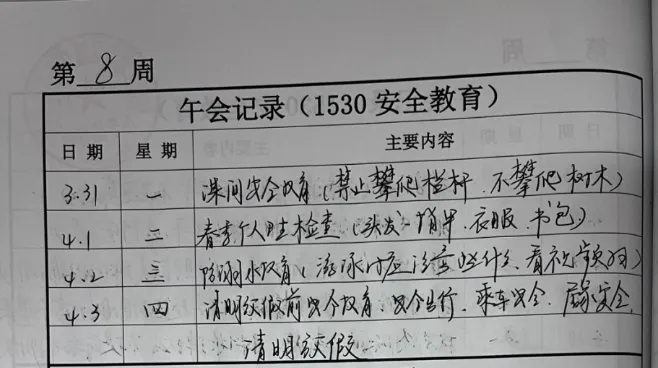 第 8 周
午会记录（1530 安全教育）
日期 星期 主要内容
3.31 一 课间安全教育（禁止攀爬栏杆、不攀爬树木）
4.1 二 春季个人卫生检查（头发、指甲、衣服、书包）
4.2 三 防溺水教育（游泳时应注意些什么、看视频）
4.3 四 清明放假前安全教育：安全出行、乘车安全、居家安全
清明放假